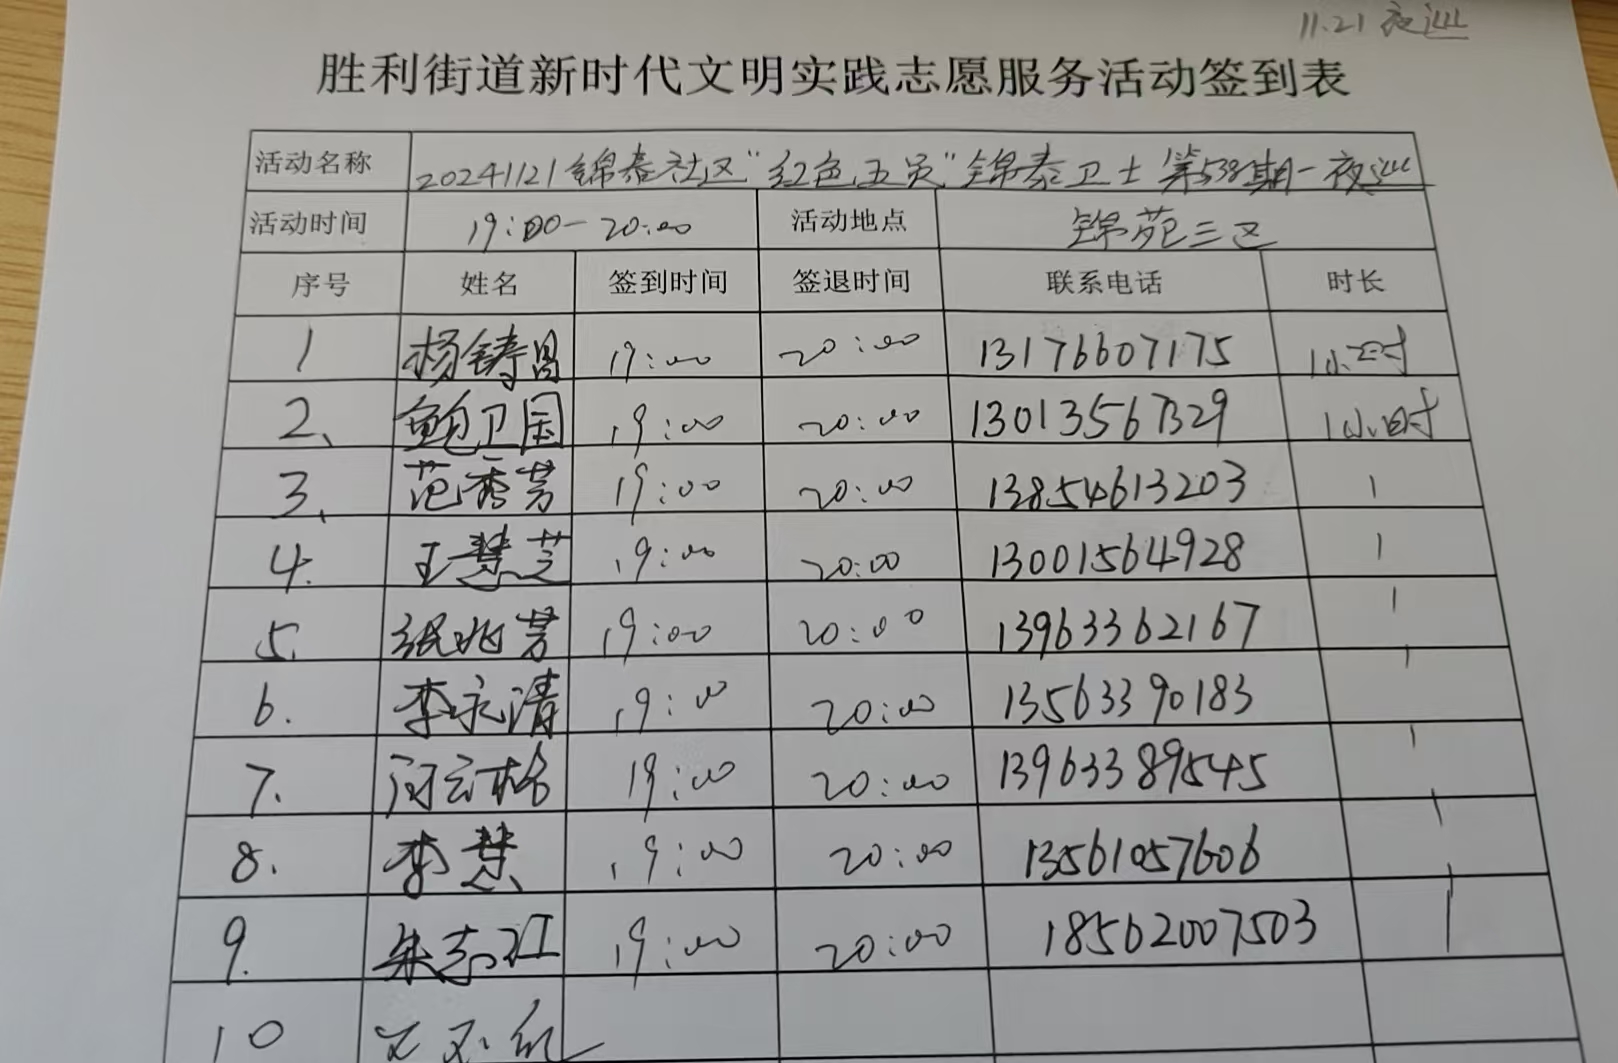 11.21 夜巡
胜利街道新时代文明实践志愿服务活动签到表
活动名称 20241121锦泰社区"红色五员"锦泰卫士第538期-夜巡
活动时间 19:00-20:00 活动地点 锦苑三区
序号 姓名 签到时间 签退时间 联系电话 时长
1 杨铸昌 19:00 20:00 13176607175 1小时
2、 鲍卫国 19:00 20:00 13013567329 1小时
3、 范秀芳 19:00 20:00 13854613203 1
4. 王慧芝 19:00 20:00 13001564928 1
5. 张兆芳 19:00 20:00 13963362167 1
6. 李永清 19:00 20:00 13563390183 1
7. 19:00 20:00 13963389545 1
8. 李慧 19:00 20:00 13561057606 1
9. 朱志江 19:00 20:00 18562007503 1
10